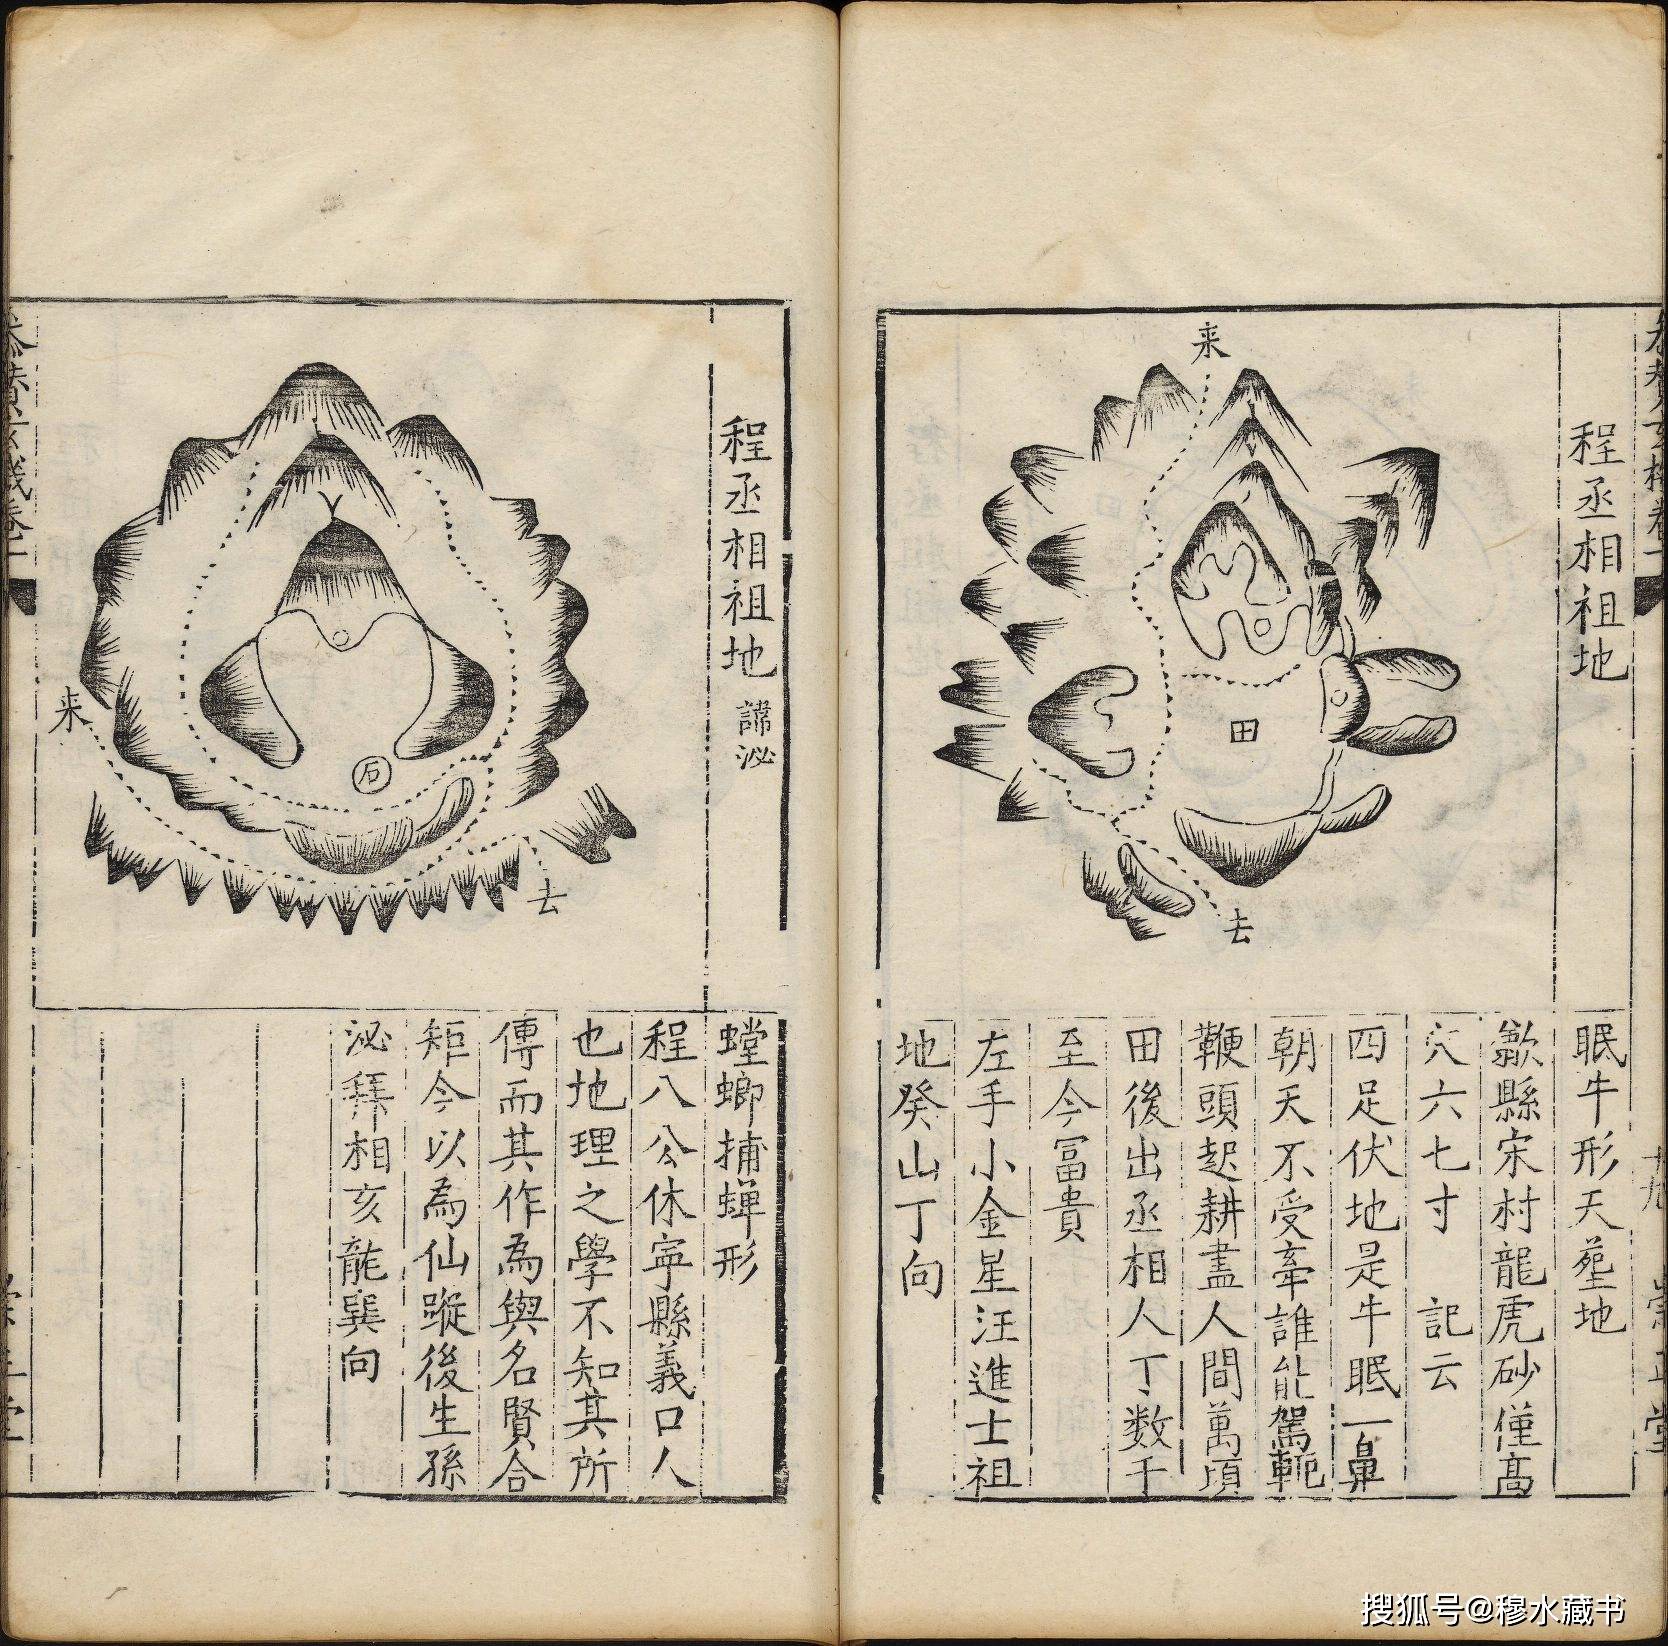 程丞相祖地
来
田
去
眠牛形天塟地
歙縣宋村龍虎砂僅高
穴六七寸　記云
四足伏地是牛眠一鼻
朝天不受牽誰能駕軛
鞭頭起耕盡人間萬頃
田後出丞相人丁数千
至今冨貴
左手小金星汪進士祖
地癸山丁向
程丞相祖地 諱泌
来
石
去
螳螂捕蟬形
程八公休寧縣義口人
也地理之學不知其所
傳而其作為與名賢合
矩今以為仙蹤後生孫
泌拜相亥龍巽向
搜狐号@穆水藏书